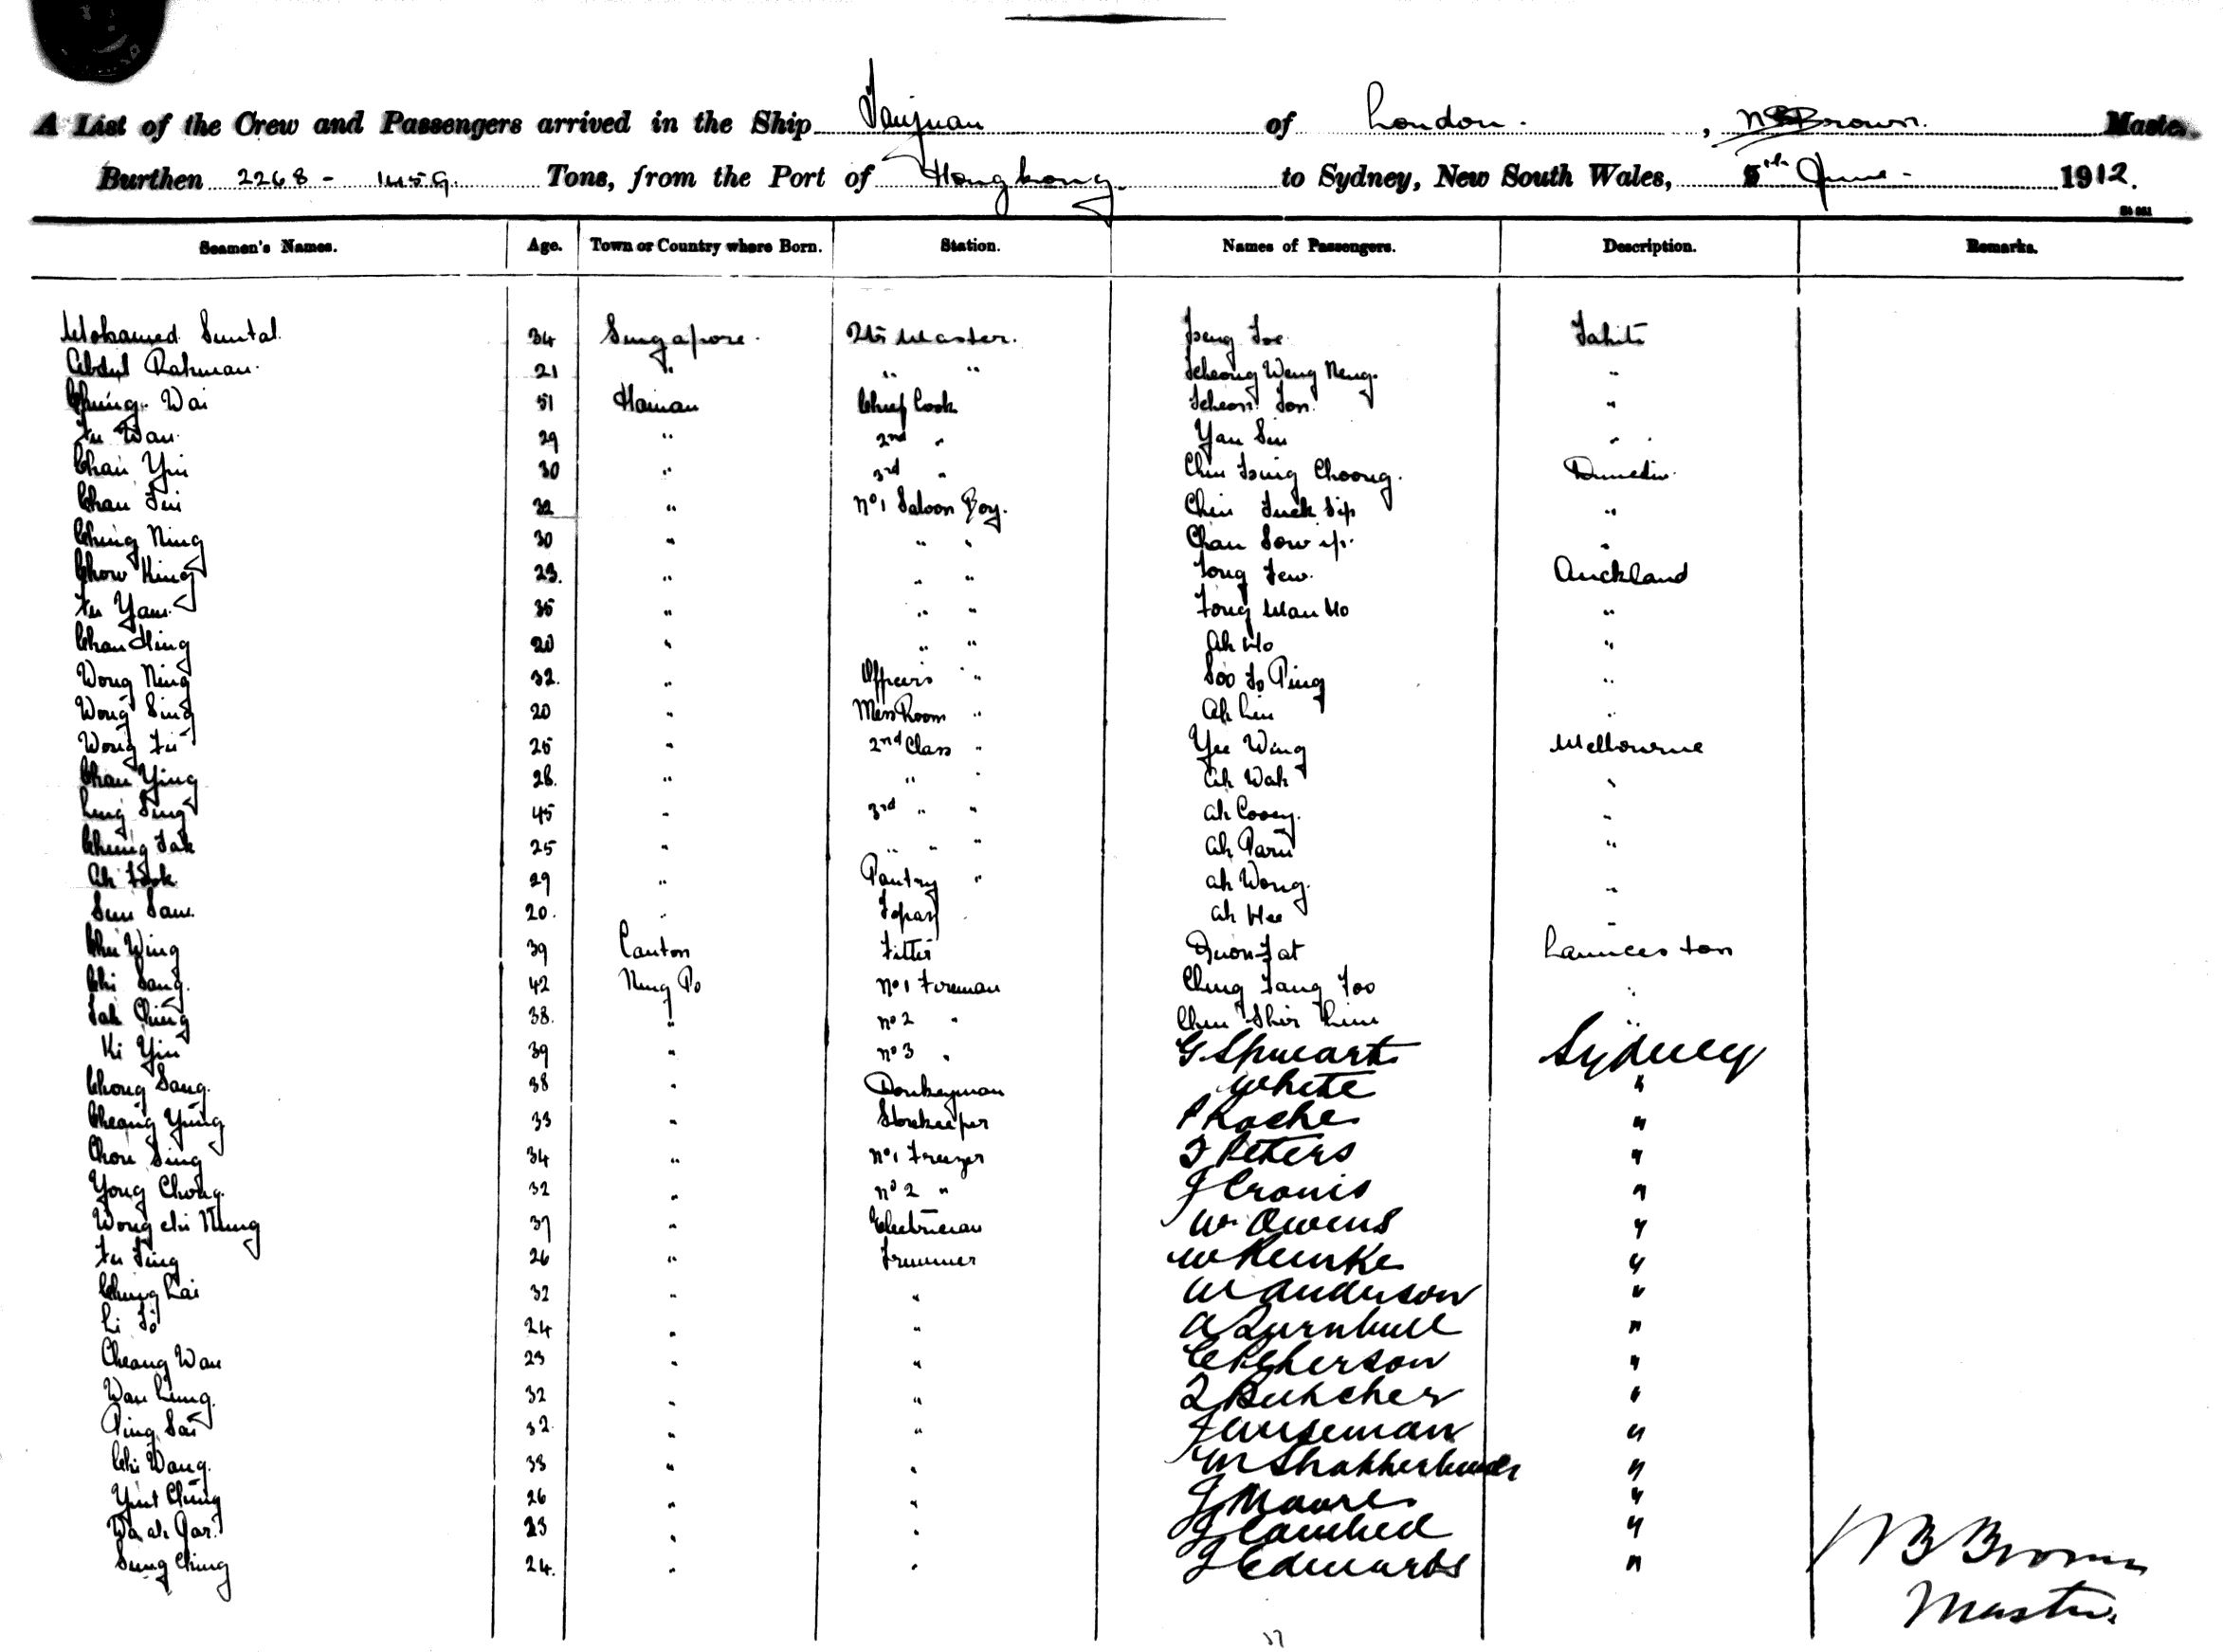 A List of the Crew and Passengers arrived in the Ship Taiyuan of London. , W B Brown. Master
Burthen 2268 - 1459. Tons, from the Port of Hong kong. to Sydney, New South Wales, 5th June - 1912.
Seamen's Names. Age. Town or Country where Born. Station. Names of Passengers. Description. Remarks.
Mohamed Suntal. 34 Singapore. Qr Master. Tahiti
Abdul Rahman. 21 " " " Tcheong Weng Neng. "
Wai 51 Hainan Chief Cook "
Fu Wan. 29 " 2nd " Yau Sin " "
Chan Yui 30 " 3rd " Chin Tsing Choong. Dunedin
Chan Fui 32 " No 1 Saloon Boy. Chin Fuck Sip "
Ching Ning 30 " " " Chan Sow "
Chow King 23. " " " Fong Few. Auckland
Fu Yam. 35 " " " Fong Man Ho "
Chan Hing 20 " " " Ah Ho "
Wong Ning 32. " Officers " Soo To Ping "
Wong Sing 20 " Mess Room " Ah Lin "
Wong Fu 25 " 2nd Class " Yee Wing Melbourne
Chan Ying 28. " " " Ah Wah "
Ling Sing 45 " 3rd " " Ah Cooey. "
Cheung Tak 25 " " " " Ah "
Ah 29 " Pantry " Ah Wong. "
Sun Sam. 20. " Topas Ah Hee "
Chu Wing 39 Canton Fitter Quon Fat Launceston
Chi Sang. 42 Ning Po No 1 Fireman Ching Fang Foo "
Tak Ching 38. " No 2 " Chin Shir "
Ki Yin 39 " No 3 " G Sydney
Chong Sang. 38 " Donkeyman White "
Cheong Yung 33 " Storekeeper P Roche "
Chou Sing 34 " No 1 Greaser F Peters "
Yong Chong. 32 " No 2 " J Cronis "
Wong chi Nung 37 " Electrician W. Owens "
Fu Ting 26 " Trimmer W Reinke "
Chung Lai 32 " " W Anderson "
Li To 24 " " A Turnbull "
Cheang Wan 23 " " "
Wan Lung. 32 " " Butcher "
Ping Sai 32 " " J Wiseman "
Chi Wang. 33 " " "
Ching 26 " " J Moore "
23 " " J "
Sung Ching 24. " " J Edwards "
W B Brown
Master.
37